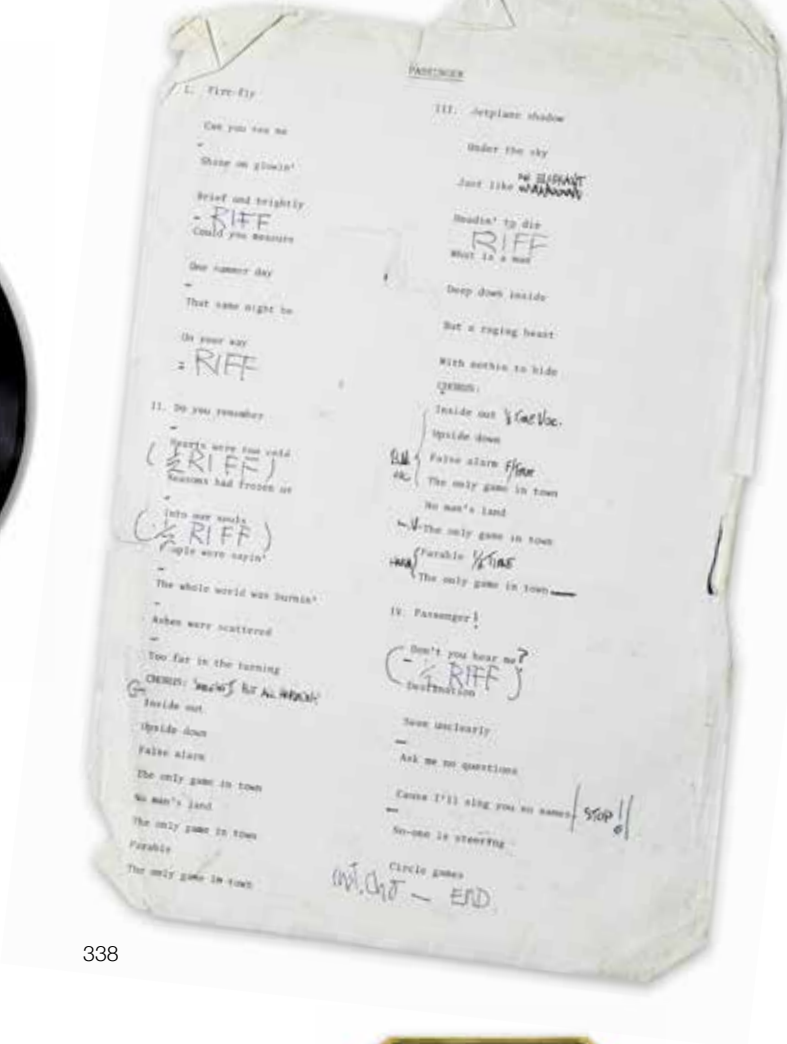 PASSENGER
I. Fire-fly
Can you see me
Shine on glowin'
Brief and brightly
- RIFF
Could you measure
One summer day
That same might be
On your way
= RIFF
II. Do you remember
Hearts were too cold
(½ RIFF)
Seasons had frozen us
Into our souls
(½ RIFF)
People were sayin'
The whole world was burnin'
Ashes were scattered
Too far in the turning
CHORUS:
Inside out
Upside down
False alarm
The only game in town
No man's land
The only game in town
Parable
The only game in town
III. Jetplane shadow
Under the sky
Just like AN ELEPHANT
Headin' to die
RIFF
What is a man
Deep down inside
But a raging heart
With nothin to hide
CHORUS:
Inside out
Upside down
False alarm
The only game in town
No man's land
The only game in town
Parable ½ TIME
The only game in town
IV. Passenger!
Don't you hear me?
(- ½ RIFF)
Destination
Seen unclearly
Ask me no questions
Cause I'll sing you no names STOP!!
No-one is steering
Circle games
— END
338